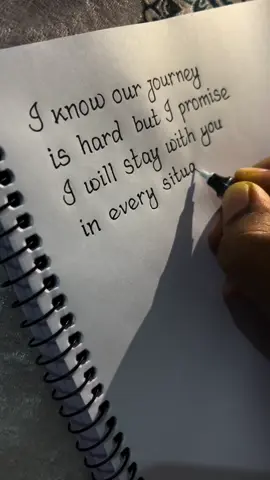 I know our journey
is hard but I promise
I will stay with you
in every situa